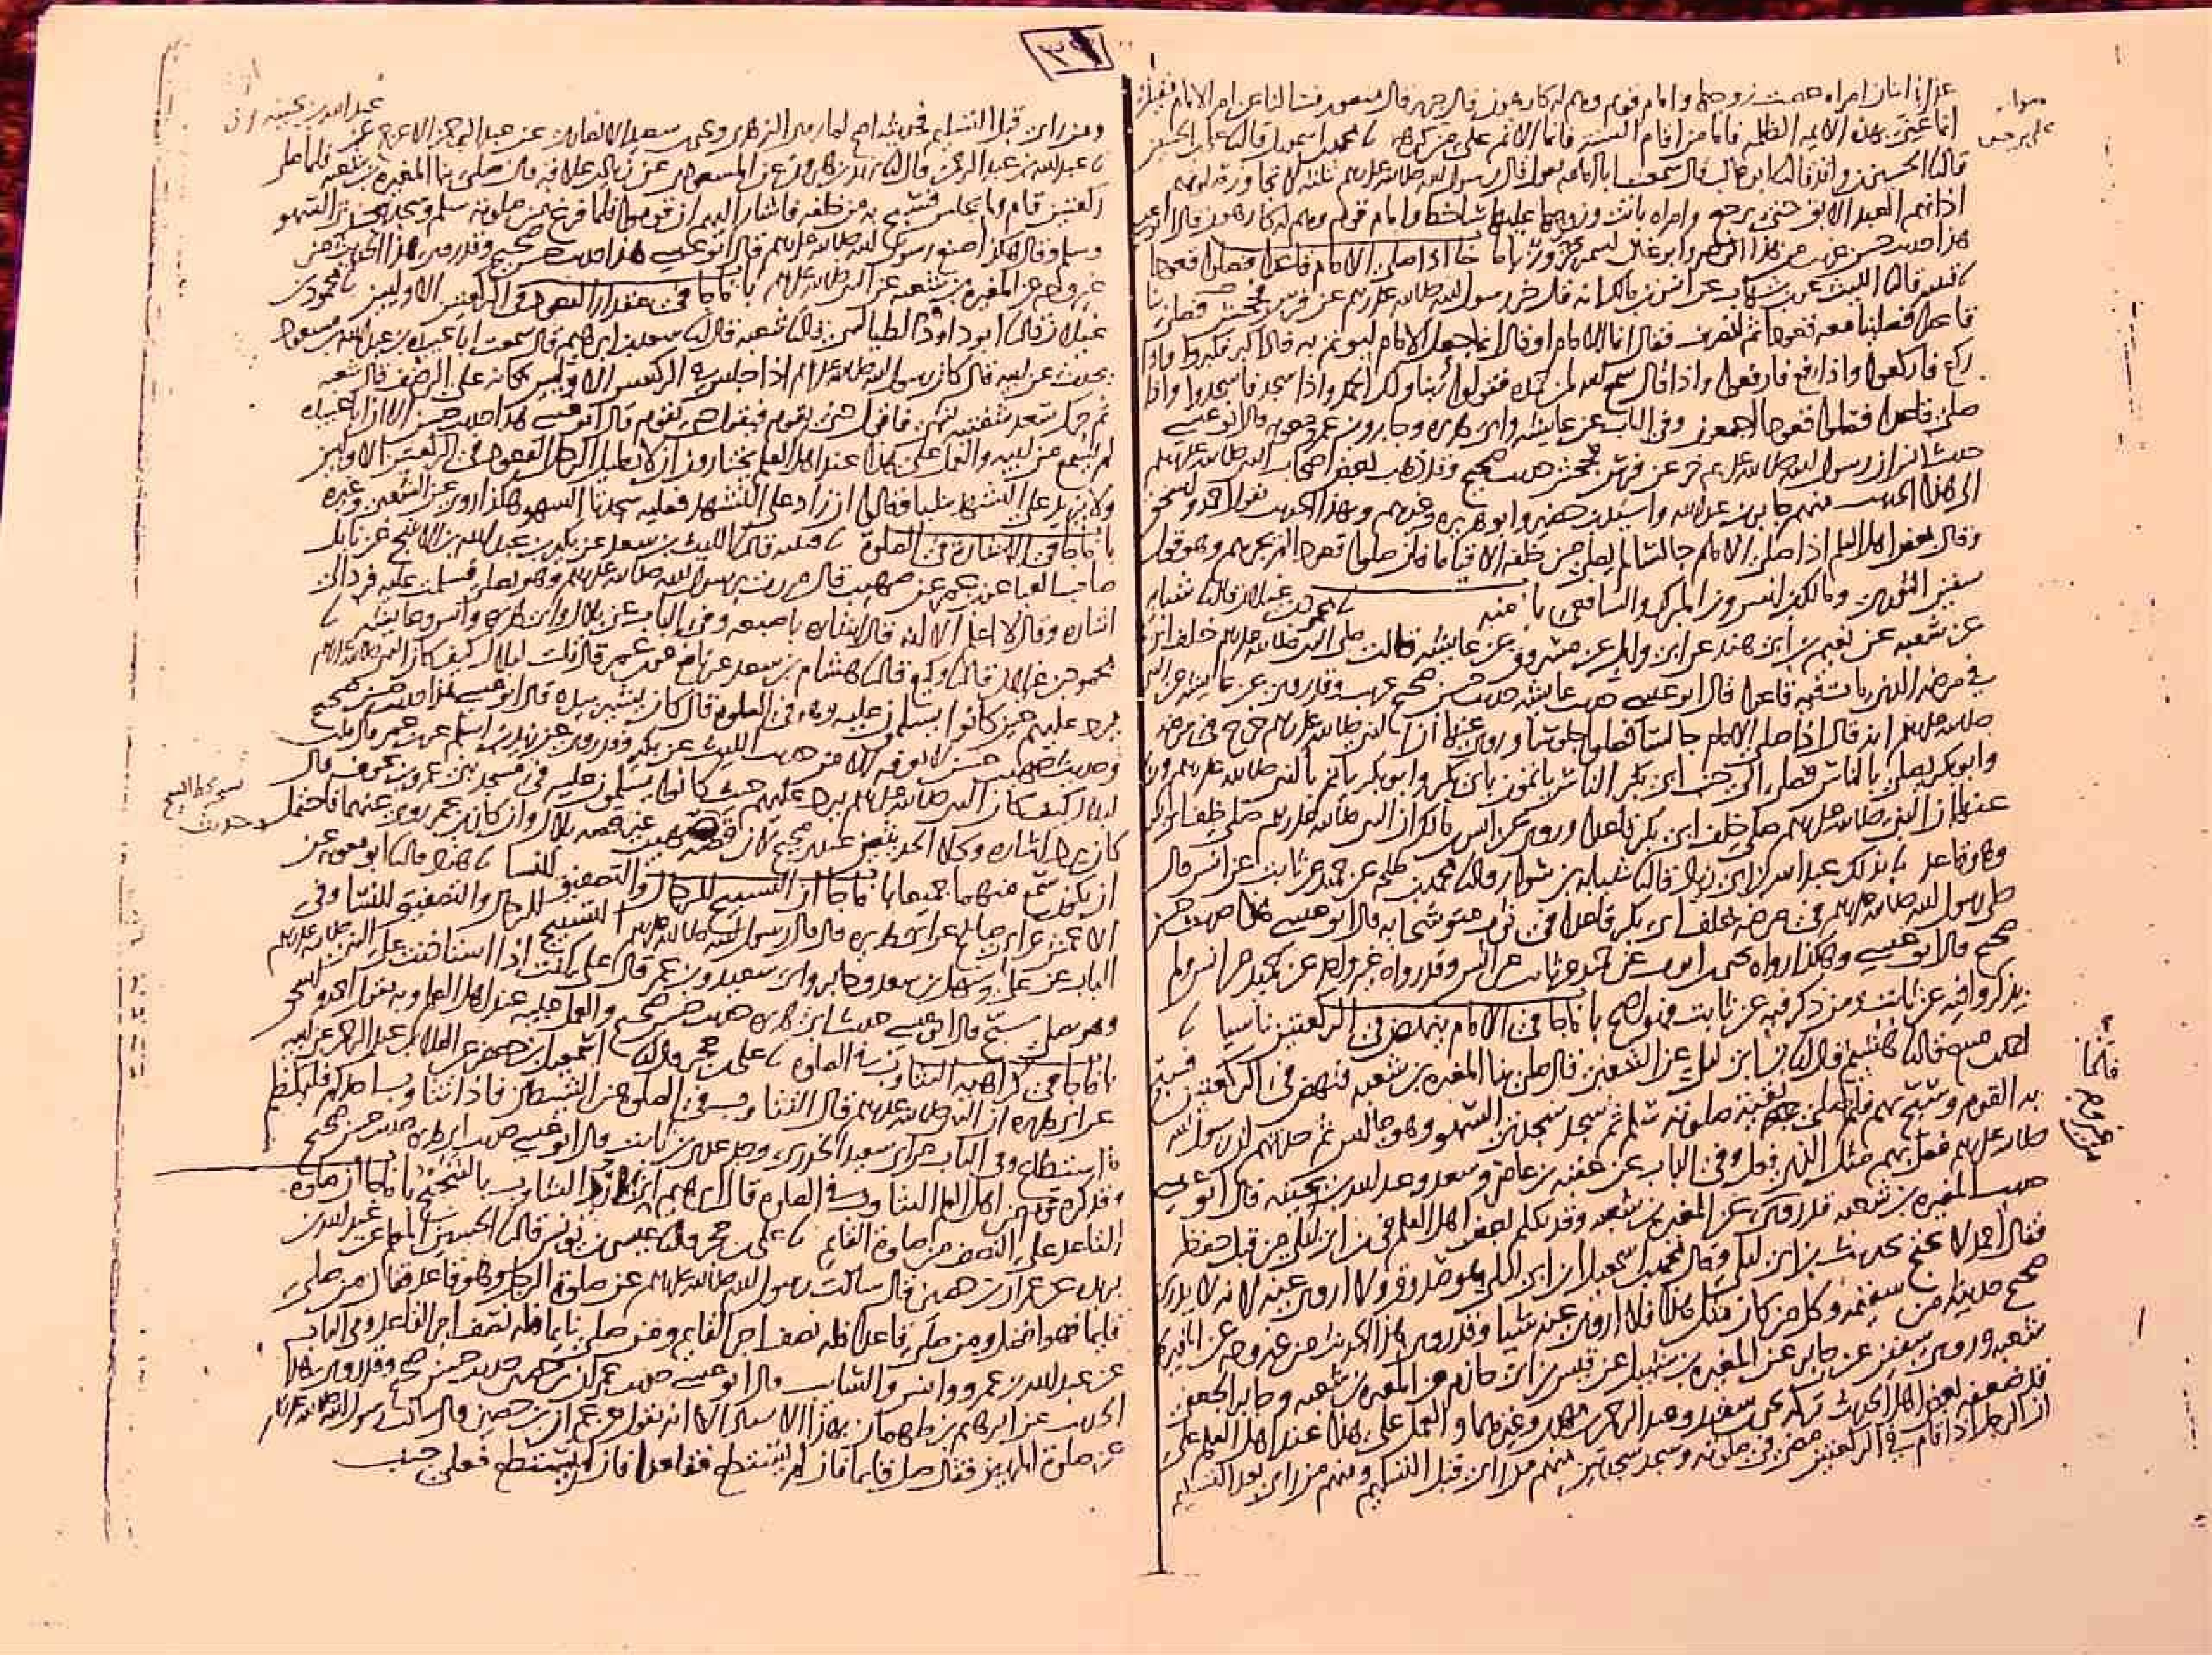 ٣٩
عذابا اثنان امراه عصت زوجها وامام قوم وهم له كارهون قال جرير قال منصور فسالنا عن امر الامام فقيل
انما عنى بهذا الايمه الظلمه فاما من اقام السنه فانما الاثم على من كرهه محمد بن اسمعيل قال علي بن الحسن
قال الحسين بن واقد قال ابو غالب قال سمعت ابا امامه يقول قال رسول الله صلى الله عليه وسلم ثلثه لا تجاوز صلوتهم
اذانهم العبد الابق حتى يرجع وامراه باتت وزوجها عليها ساخط وامام قوم وهم له كارهون قال ابو عيسى
هذا حديث حسن غريب من هذا الوجه وابو غالب اسمه حزور باب ما جا اذا صلى الامام قاعدا فصلوا قعودا
قتيبه قال الليث عن ابن شهاب عن انس بن مالك انه قال خر رسول الله صلى الله عليه وسلم عن فرس فجحش فصلى بنا
قاعدا فصلينا معه قعودا ثم انصرف فقال انما الامام او قال انما جعل الامام ليوتم به فاذا كبر فكبروا واذا
ركع فاركعوا واذا رفع فارفعوا واذا قال سمع الله لمن حمده فقولوا ربنا ولك الحمد واذا سجد فاسجدوا واذا
صلى قاعدا فصلوا قعودا اجمعون وفي الباب عن عايشه وابي هريره وجابر وابن عمر ومعويه قال ابو عيسى
حديث انس ان رسول الله صلى الله عليه وسلم خر عن فرس فجحش حديث صحيح وقد ذهب بعض اصحاب النبي صلى الله عليه وسلم
الى هذا الحديث منهم جابر بن عبد الله واسيد بن حضير وابو هريره وغيرهم وبهذا الحديث يقول احمد واسحق
وقال بعض اهل العلم اذا صلى الامام جالسا لم يصل من خلفه الا قياما فان صلوا قعودا لم يجزهم وهو قول
سفين الثوري ومالك بن انس وابن المبارك والشافعي باب منه محمود بن غيلان قال شبابه
عن شعبه عن نعيم بن ابي هند عن ابي وايل عن مسروق عن عايشه قالت صلى النبي صلى الله عليه وسلم خلف ابي بكر
في مرضه الذي مات فيه قاعدا قال ابو عيسى حديث عايشه حديث حسن صحيح غريب وقد روي عن عايشه عن النبي
صلى الله عليه وسلم انه قال اذا صلى الامام جالسا فصلوا جلوسا وروي عنها ان النبي صلى الله عليه وسلم خرج في مرضه
وابو بكر يصلي بالناس فصلى الى جنب ابي بكر الناس ياتمون بابي بكر وابو بكر ياتم بالنبي صلى الله عليه وسلم وروي
عنها ان النبي صلى الله عليه وسلم صلى خلف ابي بكر قاعدا وروي عن انس بن مالك ان النبي صلى الله عليه وسلم صلى خلف ابي بكر
وهو قاعد بذلك عبد الله بن ابي زياد قال شبابه بن سوار قال محمد بن طلحه عن حميد عن ثابت عن انس قال
صلى رسول الله صلى الله عليه وسلم في مرضه خلف ابي بكر قاعدا في ثوب متوشحا به قال ابو عيسى هذا حديث حسن
صحيح قال ابو عيسى وهكذا رواه يحيى بن ايوب عن حميد عن ثابت عن انس وقد رواه غير واحد عن حميد عن انس ولم
يذكروا فيه عن ثابت ومن ذكر فيه عن ثابت فهو اصح باب ما جا في الامام ينهض في الركعتين ناسيا
احمد بن منيع قال هشيم قال ابن ابي ليلى عن الشعبي قال صلى بنا المغيره بن شعبه فنهض في الركعتين فسبح
به القوم وسبح بهم فلما قضى بقيه صلوته سلم ثم سجد سجدتي السهو وهو جالس ثم حدثهم ان رسول الله
صلى الله عليه وسلم فعل بهم مثل الذي فعل وفي الباب عن عقبه بن عامر وسعد وعبد الله بن بحينه قال ابو عيسى
حديث المغيره بن شعبه قد روي عن المغيره بن شعبه وقد تكلم بعض اهل العلم في ابن ابي ليلى من قبل حفظه
فقال احمد لا يحتج بحديث ابن ابي ليلى وقال محمد بن اسمعيل ابن ابي ليلى هو صدوق ولا اروي عنه لانه لا يدري
صحيح حديثه من سقيمه وكل من كان مثل هذا فلا اروي عنه شيا وقد روي هذا الحديث من غير وجه عن المغيره بن
شعبه وروى سفين عن جابر عن المغيره بن شبيل عن قيس بن ابي حازم عن المغيره بن شعبه وجابر الجعفي
قد ضعفه بعض اهل الحديث تركه يحيى بن سعيد وعبد الرحمن بن مهدي وغيرهما والعمل على هذا عند اهل العلم على
ان الرجل اذا قام في الركعتين مضى في صلوته وسجد سجدتين منهم من راى قبل التسليم ومنهم من راى بعد التسليم
ومن راى قبل التسليم فحديثه اصح لما روى الزهري ويحيى بن سعيد الانصاري عن عبد الرحمن الاعرج عن
عبد الله بن بحينه
عبد الله بن عبد الرحمن قال يزيد بن هرون عن المسعودي عن زياد بن علاقه قال صلى بنا المغيره بن شعبه فلما صلى
ركعتين قام ولم يجلس فسبح به من خلفه فاشار اليهم ان قوموا فلما فرغ من صلوته سلم وسجد سجدتي السهو
وسلم وقال هكذا صنع رسول الله صلى الله عليه وسلم قال ابو عيسى هذا حديث حسن صحيح وقد روي هذا الحديث من
غير وجه عن المغيره بن شعبه عن النبي صلى الله عليه وسلم باب ما جا في مقدار القعود في الركعتين الاوليين محمود بن
غيلان قال ابو داود الطيالسي قال شعبه قال سعد بن ابرهيم قال سمعت ابا عبيده بن عبد الله بن مسعود
يحدث عن ابيه قال كان رسول الله صلى الله عليه وسلم اذا جلس في الركعتين الاوليين كانه على الرضف قال شعبه
ثم حرك سعد شفتيه بشي فاقول حتى يقوم فيقول حتى يقوم قال ابو عيسى هذا حديث حسن الا ان ابا عبيده
لم يسمع من ابيه والعمل على هذا عند اهل العلم يختارون ان لا يطيل الرجل القعود في الركعتين الاوليين
ولا يزيد على التشهد شيا وقالوا ان زاد على التشهد فعليه سجدتا السهو هكذا روي عن الشعبي وغيره
باب ما جا في الاشاره في الصلوة قتيبه قال الليث بن سعد عن بكير بن عبد الله بن الاشج عن نابل
صاحب العبا عن ابن عمر عن صهيب قال مررت برسول الله صلى الله عليه وسلم وهو يصلي فسلمت عليه فرد الي
اشاره وقال لا اعلم الا انه قال اشاره باصبعه وفي الباب عن بلال وابي هريره وانس وعايشه
محمود بن غيلان قال وكيع قال هشام بن سعد عن نافع عن ابن عمر قال قلت لبلال كيف كان النبي صلى الله عليه وسلم
يرد عليهم حين كانوا يسلمون عليه وهو في الصلوه قال كان يشير بيده قال ابو عيسى هذا حديث حسن صحيح
وحديث صهيب حسن لا نعرفه الا من حديث الليث عن بكير وقد روي عن زيد بن اسلم عن ابن عمر قال قلت
لبلال كيف كان النبي صلى الله عليه وسلم يرد عليهم حيث كانوا يسلمون عليه في مسجد بني عمرو بن عوف قال
كان يرد اشاره وكلا الحديثين عندي صحيح لان قصه صهيب غير قصه بلال وان كان ابن عمر روى عنهما فاحتمل
ان يكون سمع منهما جميعا باب ما جا ان التسبيح للرجال والتصفيق للنسا هناد قال ابو معويه عن
الاعمش عن ابي صالح عن ابي هريره قال قال رسول الله صلى الله عليه وسلم التسبيح للرجال والتصفيق للنسا وفي
الباب عن علي وسهل بن سعد وجابر وابي سعيد وابن عمر قال علي كنت اذا استاذنت على النبي صلى الله عليه وسلم
وهو يصلي سبح قال ابو عيسى حديث ابي هريره حديث حسن صحيح والعمل عليه عند اهل العلم وبه يقول احمد واسحق
باب ما جا في كراهيه التثاوب في الصلوه علي بن حجر قال اسمعيل بن جعفر عن العلا بن عبد الرحمن عن ابيه
عن ابي هريره ان النبي صلى الله عليه وسلم قال التثاوب في الصلوه من الشيطان فاذا تثاوب احدكم فليكظم
ما استطاع وفي الباب عن ابي سعيد الخدري وجد عدي بن ثابت قال ابو عيسى حديث ابي هريره حديث حسن صحيح
وقد كره قوم من اهل العلم التثاوب في الصلوه قال ابرهيم اني لارد التثاوب بالتنحنح باب ما جا ان صلوه
القاعد على النصف من صلوة القايم علي بن حجر قال عيسى بن يونس قال الحسين المعلم عن عبد الله بن
بريده عن عمران بن حصين قال سالت رسول الله صلى الله عليه وسلم عن صلوة الرجل وهو قاعد قال من صلى
قايما فهو افضل ومن صلى قاعدا فله نصف اجر القايم ومن صلى نايما فله نصف اجر القاعد وفي الباب
عن عبد الله بن عمرو وانس والسايب قال ابو عيسى حديث عمران بن حصين حديث حسن صحيح وقد روي هذا
الحديث عن ابرهيم بن طهمان بهذا الاسناد الا انه يقول عن عمران بن حصين قال سالت رسول الله صلى الله عليه وسلم
عن صلوة المريض فقال صل قايما فان لم تستطع فقاعدا فان لم تستطع فعلى جنب